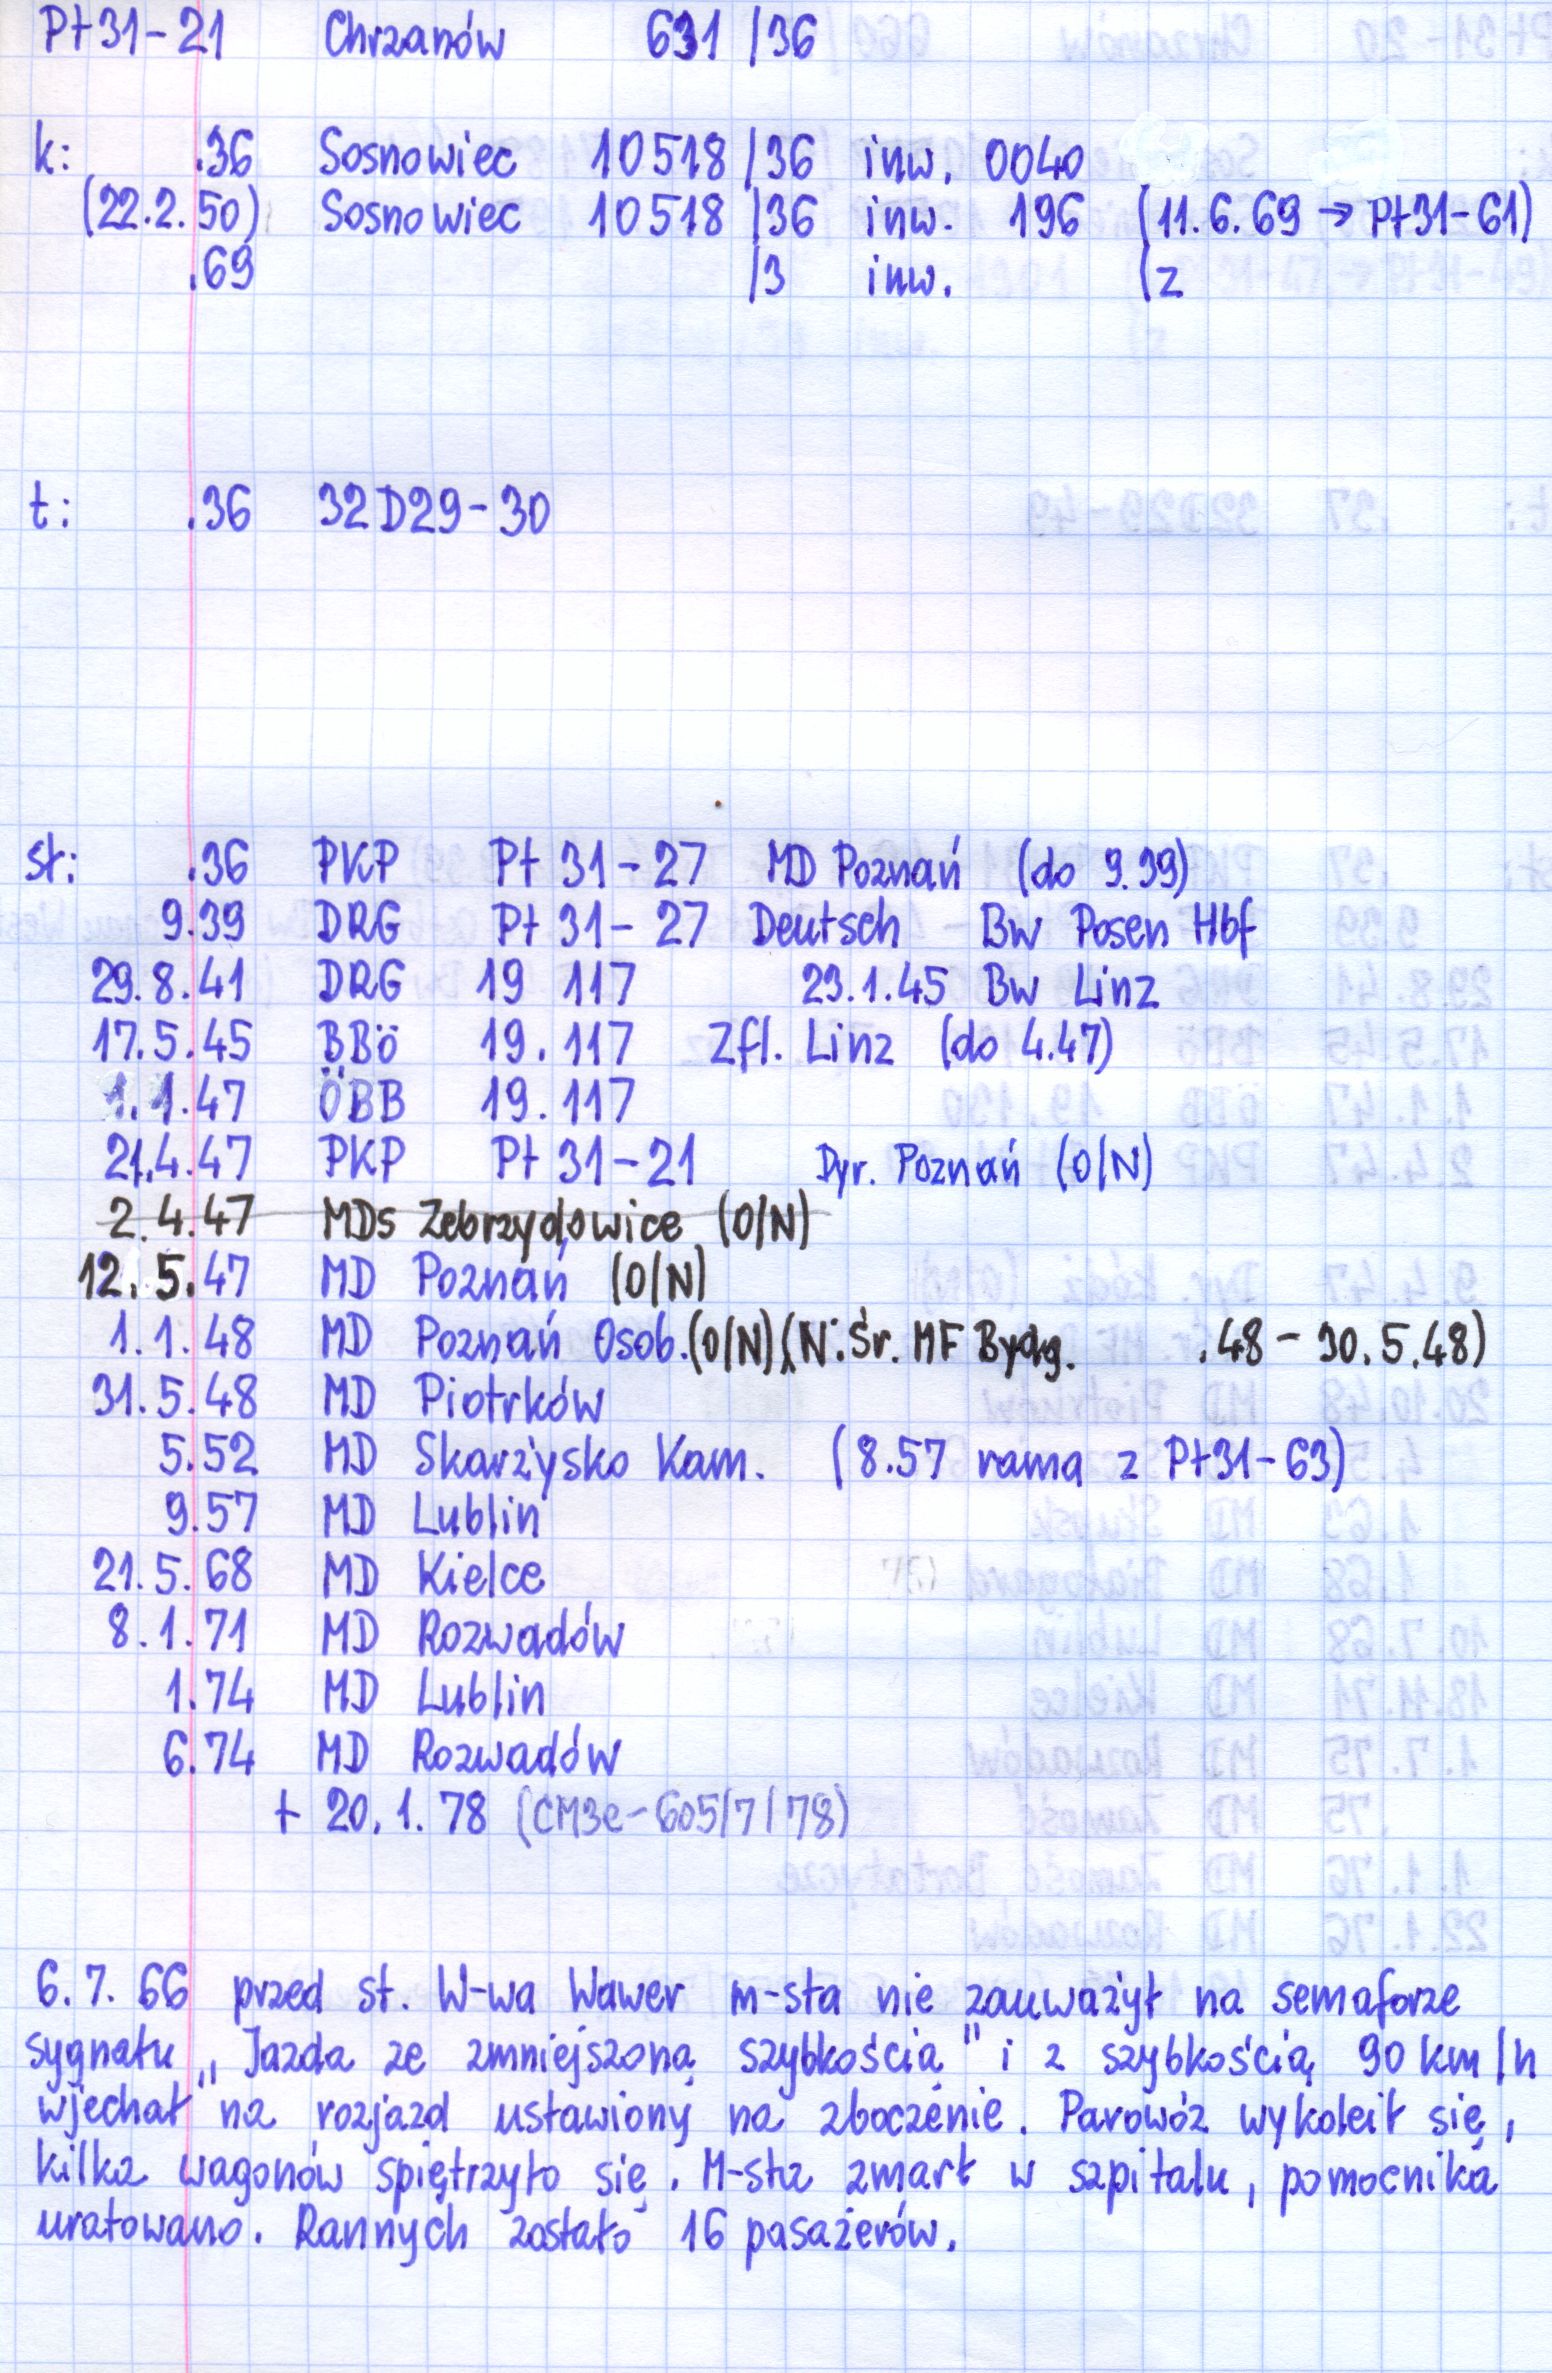 Pt31-21 Chrzanów 631 /36
k: .36 Sosnowiec 10518 /36 inw. 0040
(22.2.50) Sosnowiec 10518 /36 inw. 196 (11.6.69 → Pt31-61)
.69 /3 inw. (z
t: .36 32D29-30
st: .36 PKP Pt 31-27 MD Poznań (do 9.39)
9.39 DRG Pt 31-27 Deutsch Bw Posen Hbf
29.8.41 DRG 19 117 23.1.45 Bw Linz
17.5.45 BBö 19.117 Zfl. Linz (do 4.47)
1.1.47 ÖBB 19.117
21.4.47 PKP Pt 31-21 Dyr. Poznań (O/N)
2.4.47 MDs Zebrzydowice (O/N)
12.5.47 MD Poznań (O/N)
1.1.48 MD Poznań Osob.(O/N)(N:Śr. MF Bydg. .48-30.5.48)
31.5.48 MD Piotrków
5.52 MD Skarżysko Kam. (8.57 rama z Pt31-63)
9.57 MD Lublin
21.5.68 MD Kielce
8.1.71 MD Rozwadów
1.74 MD Lublin
6.74 MD Rozwadów
+ 20.1.78 (CM3e-605/7/78)
6.7.66 przed st. W-wa Wawer m-sta nie zauważył na semaforze
sygnału „Jazda ze zmniejszoną szybkością" i z szybkością 90 km/h
wjechał na rozjazd ustawiony na zboczenie. Parowóz wykoleił się,
kilka wagonów spiętrzyło się. M-sta zmarł w szpitalu, pomocnika
uratowano. Rannych zostało 16 pasażerów.